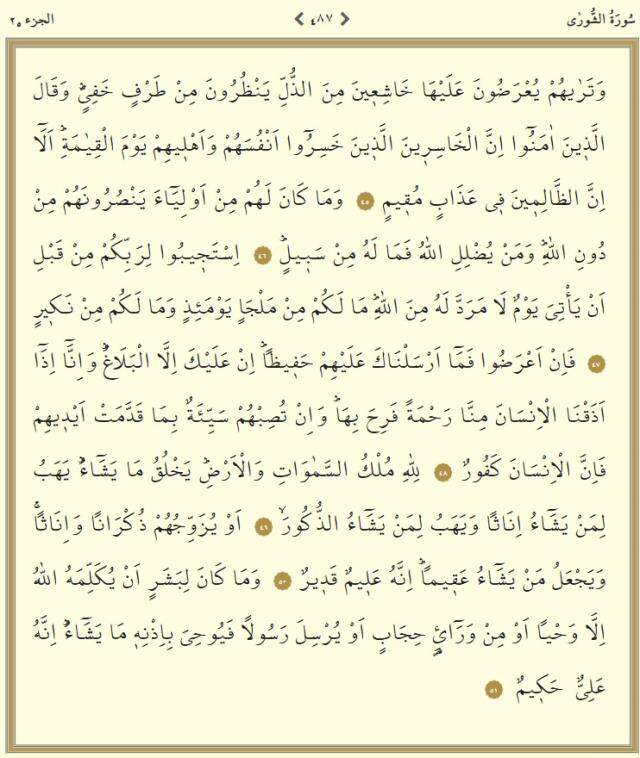 سُورَةُ الشُّورٰى ❮ ٤٨٧ ❯ الجزء ٢٥
وَتَرٰيهُمْ يُعْرَضُونَ عَلَيْهَا خَاشِع۪ينَ مِنَ الذُّلِّ يَنْظُرُونَ مِنْ طَرْفٍ خَفِيٍّۜ وَقَالَ
الَّذ۪ينَ اٰمَنُٓوا اِنَّ الْخَاسِر۪ينَ الَّذ۪ينَ خَسِرُٓوا اَنْفُسَهُمْ وَاَهْل۪يهِمْ يَوْمَ الْقِيٰمَةِۜ اَلَٓا
اِنَّ الظَّالِم۪ينَ ف۪ي عَذَابٍ مُق۪يمٍ ﴿٤٥﴾ وَمَا كَانَ لَهُمْ مِنْ اَوْلِيَٓاءَ يَنْصُرُونَهُمْ مِنْ
دُونِ اللّٰهِۜ وَمَنْ يُضْلِلِ اللّٰهُ فَمَا لَهُ مِنْ سَب۪يلٍۜ ﴿٤٦﴾ اِسْتَج۪يبُوا لِرَبِّكُمْ مِنْ قَبْلِ
اَنْ يَأْتِيَ يَوْمٌ لَا مَرَدَّ لَهُ مِنَ اللّٰهِۜ مَا لَكُمْ مِنْ مَلْجَأٍ يَوْمَئِذٍ وَمَا لَكُمْ مِنْ نَك۪يرٍ
﴿٤٧﴾ فَاِنْ اَعْرَضُوا فَمَٓا اَرْسَلْنَاكَ عَلَيْهِمْ حَف۪يظاًۜ اِنْ عَلَيْكَ اِلَّا الْبَلَاغُۜ وَاِنَّٓا اِذَٓا
اَذَقْنَا الْاِنْسَانَ مِنَّا رَحْمَةً فَرِحَ بِهَاۚ وَاِنْ تُصِبْهُمْ سَيِّئَةٌ بِمَا قَدَّمَتْ اَيْد۪يهِمْ
فَاِنَّ الْاِنْسَانَ كَفُورٌ ﴿٤٨﴾ لِلّٰهِ مُلْكُ السَّمٰوَاتِ وَالْاَرْضِۜ يَخْلُقُ مَا يَشَٓاءُۜ يَهَبُ
لِمَنْ يَشَٓاءُ اِنَاثًا وَيَهَبُ لِمَنْ يَشَٓاءُ الذُّكُورَۙ ﴿٤٩﴾ اَوْ يُزَوِّجُهُمْ ذُكْرَانًا وَاِنَاثًاۚ
وَيَجْعَلُ مَنْ يَشَٓاءُ عَق۪يماًۜ اِنَّهُ عَل۪يمٌ قَد۪يرٌ ﴿٥٠﴾ وَمَا كَانَ لِبَشَرٍ اَنْ يُكَلِّمَهُ اللّٰهُ
اِلَّا وَحْيًا اَوْ مِنْ وَرَٓائِ۬ حِجَابٍ اَوْ يُرْسِلَ رَسُولًا فَيُوحِيَ بِاِذْنِه۪ مَا يَشَٓاءُۜ اِنَّهُ
عَلِيٌّ حَك۪يمٌ ﴿٥١﴾